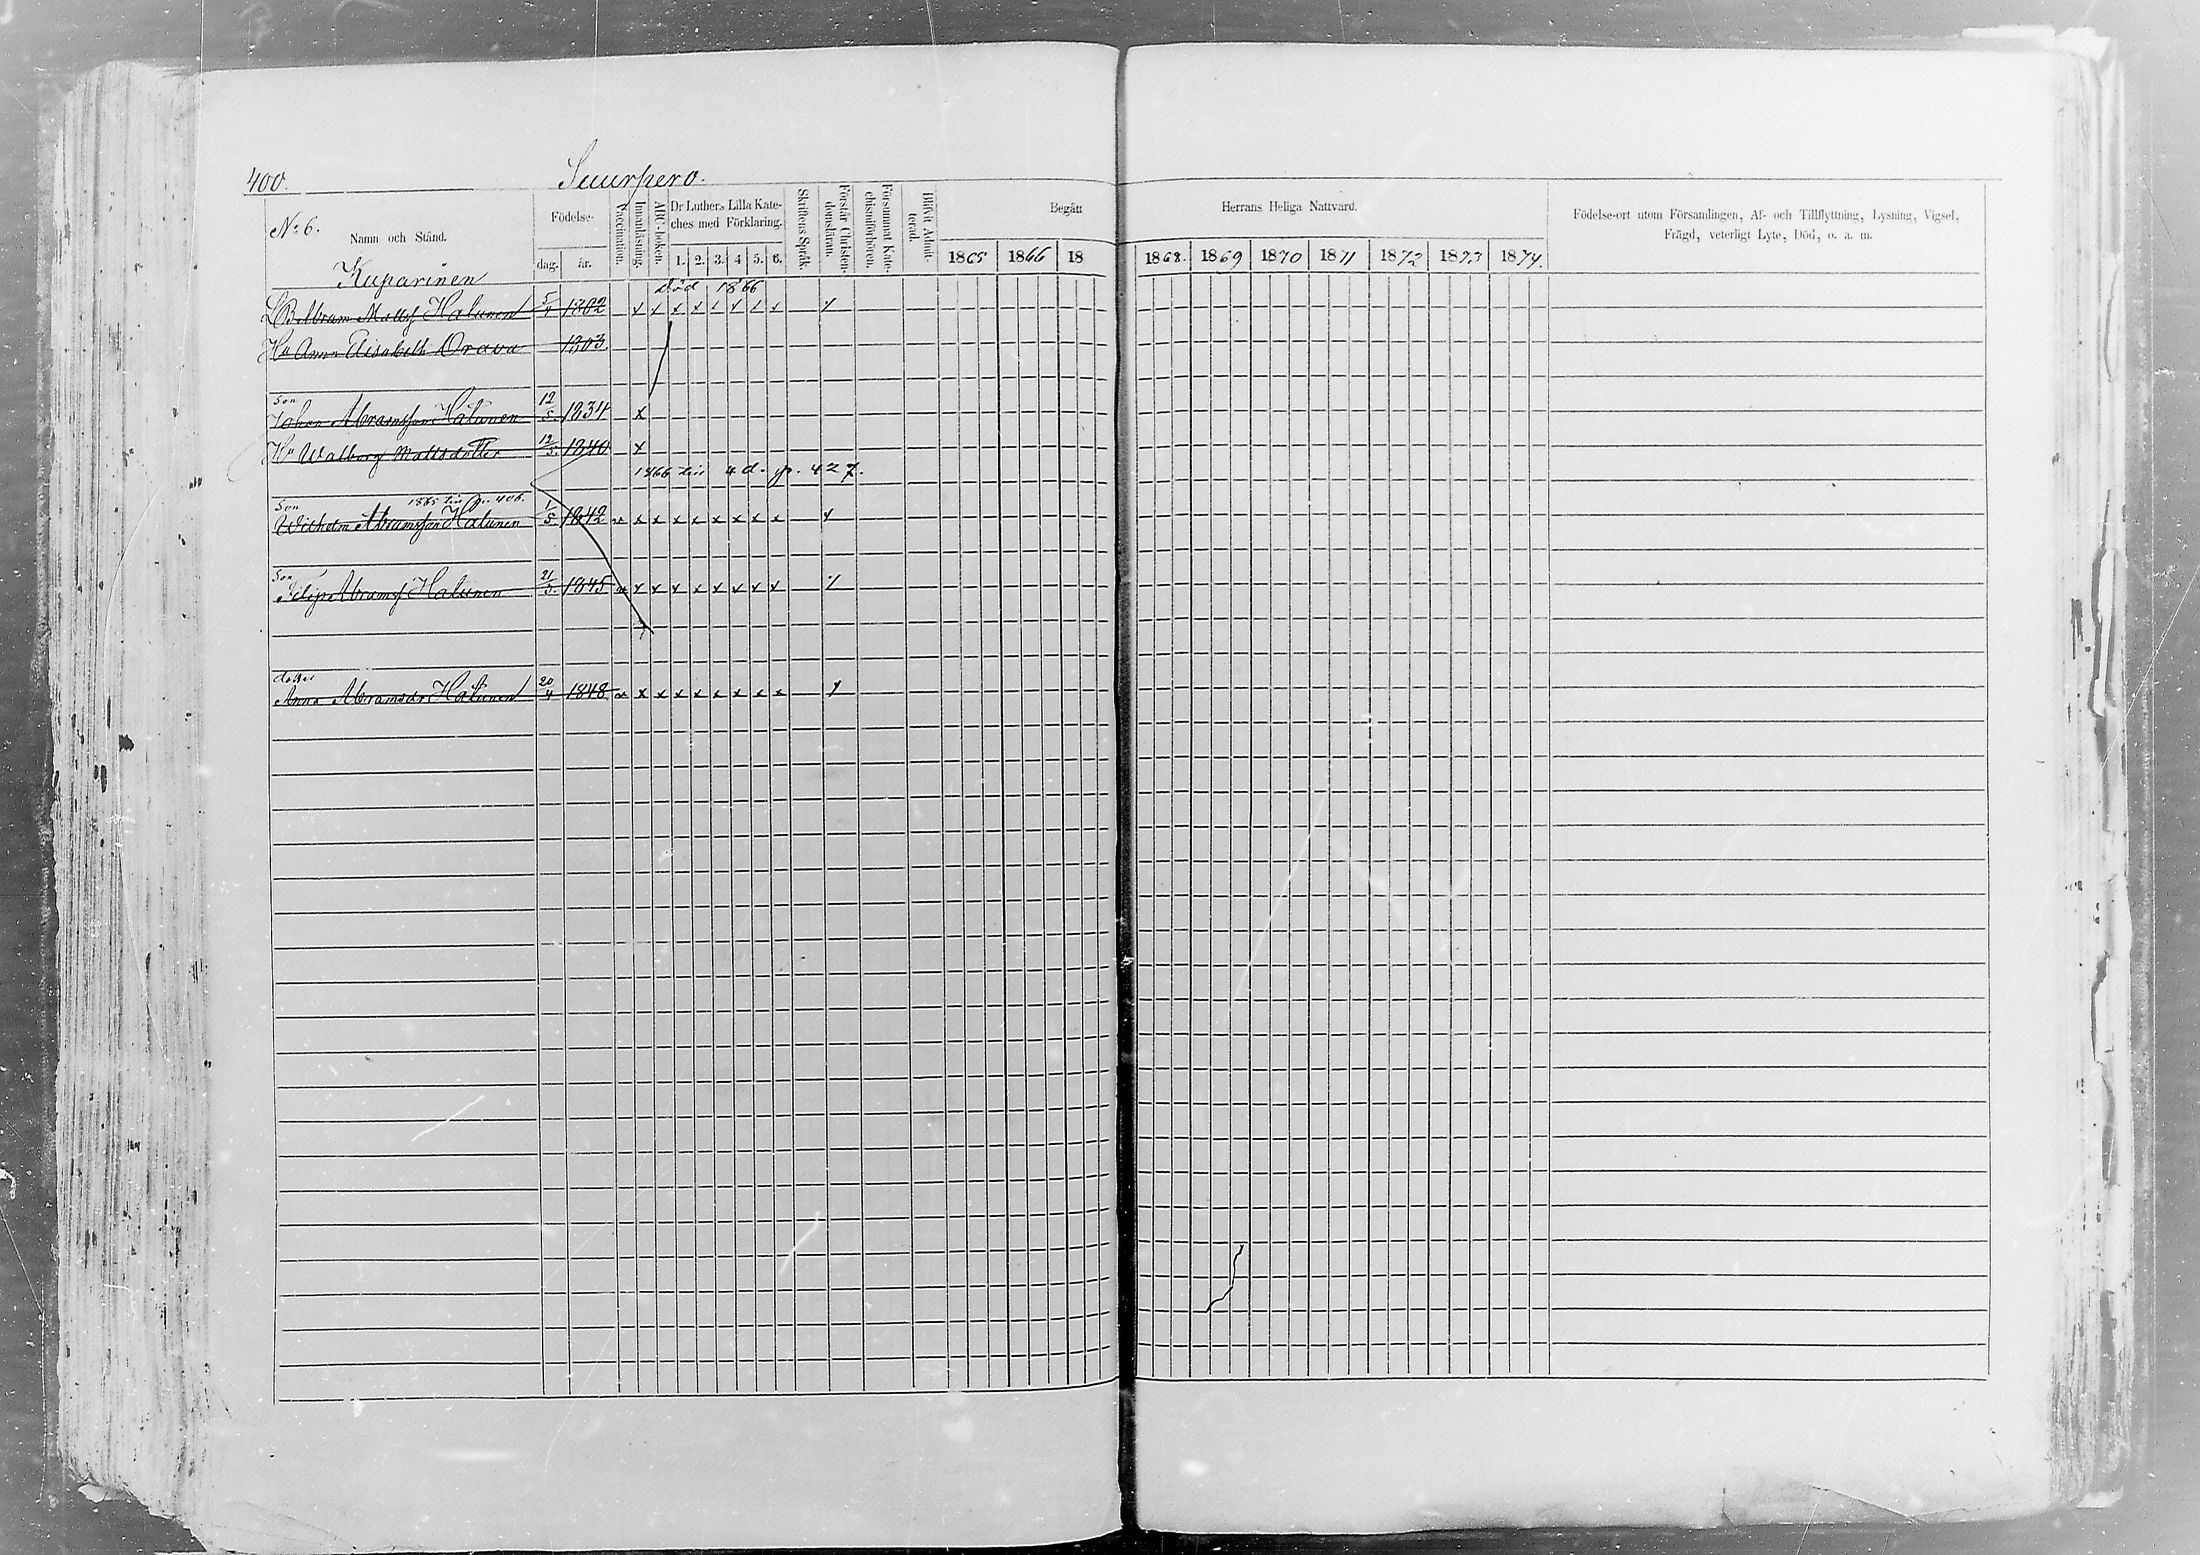 400. Suurpero.
No 6. Namn och Stånd. Födelse- Vaccination. Innanläsning. ABC-boken. Dr Luthers Lilla Kateches med Förklaring. Skriftens Språk. Förstår Christendomsläran. Försummat Katechismiförhören. Blifvit Admitterad. Begått Herrans Heliga Nattvard. Födelse-ort utom Församlingen, Af- och Tillflyttning, Lysning, Vigsel,
Frägd, veterligt Lyte, Död, o. a. m.
dag. år. 1. 2. 3. 4 5. 6. 1865 1866 18 1868. 1869 1870 1871 1872 1873 1874.
Kuparinen
död 1866
Abram Matts Halunen 5/4 1802 x x x x x x x x x
Hu Anna Elisabeth Orava 1803
Son
Johan Abramsson Halunen 12/5. 1834 x
Hu Walborg Mattsdotter 12/3. 1840 x
1866 till 4 d. p. 427.
Son 1865 till p. 406.
Wilhelm Abramsson Halunen 1/5 1842 v x x x x x x x x x
Son
Filip Abrams Halunen 21/3. 1845 v x x x x x x x x x
dotter
Anna Abramsdr Halunen 20/4 1848 v x x x x x x x x x